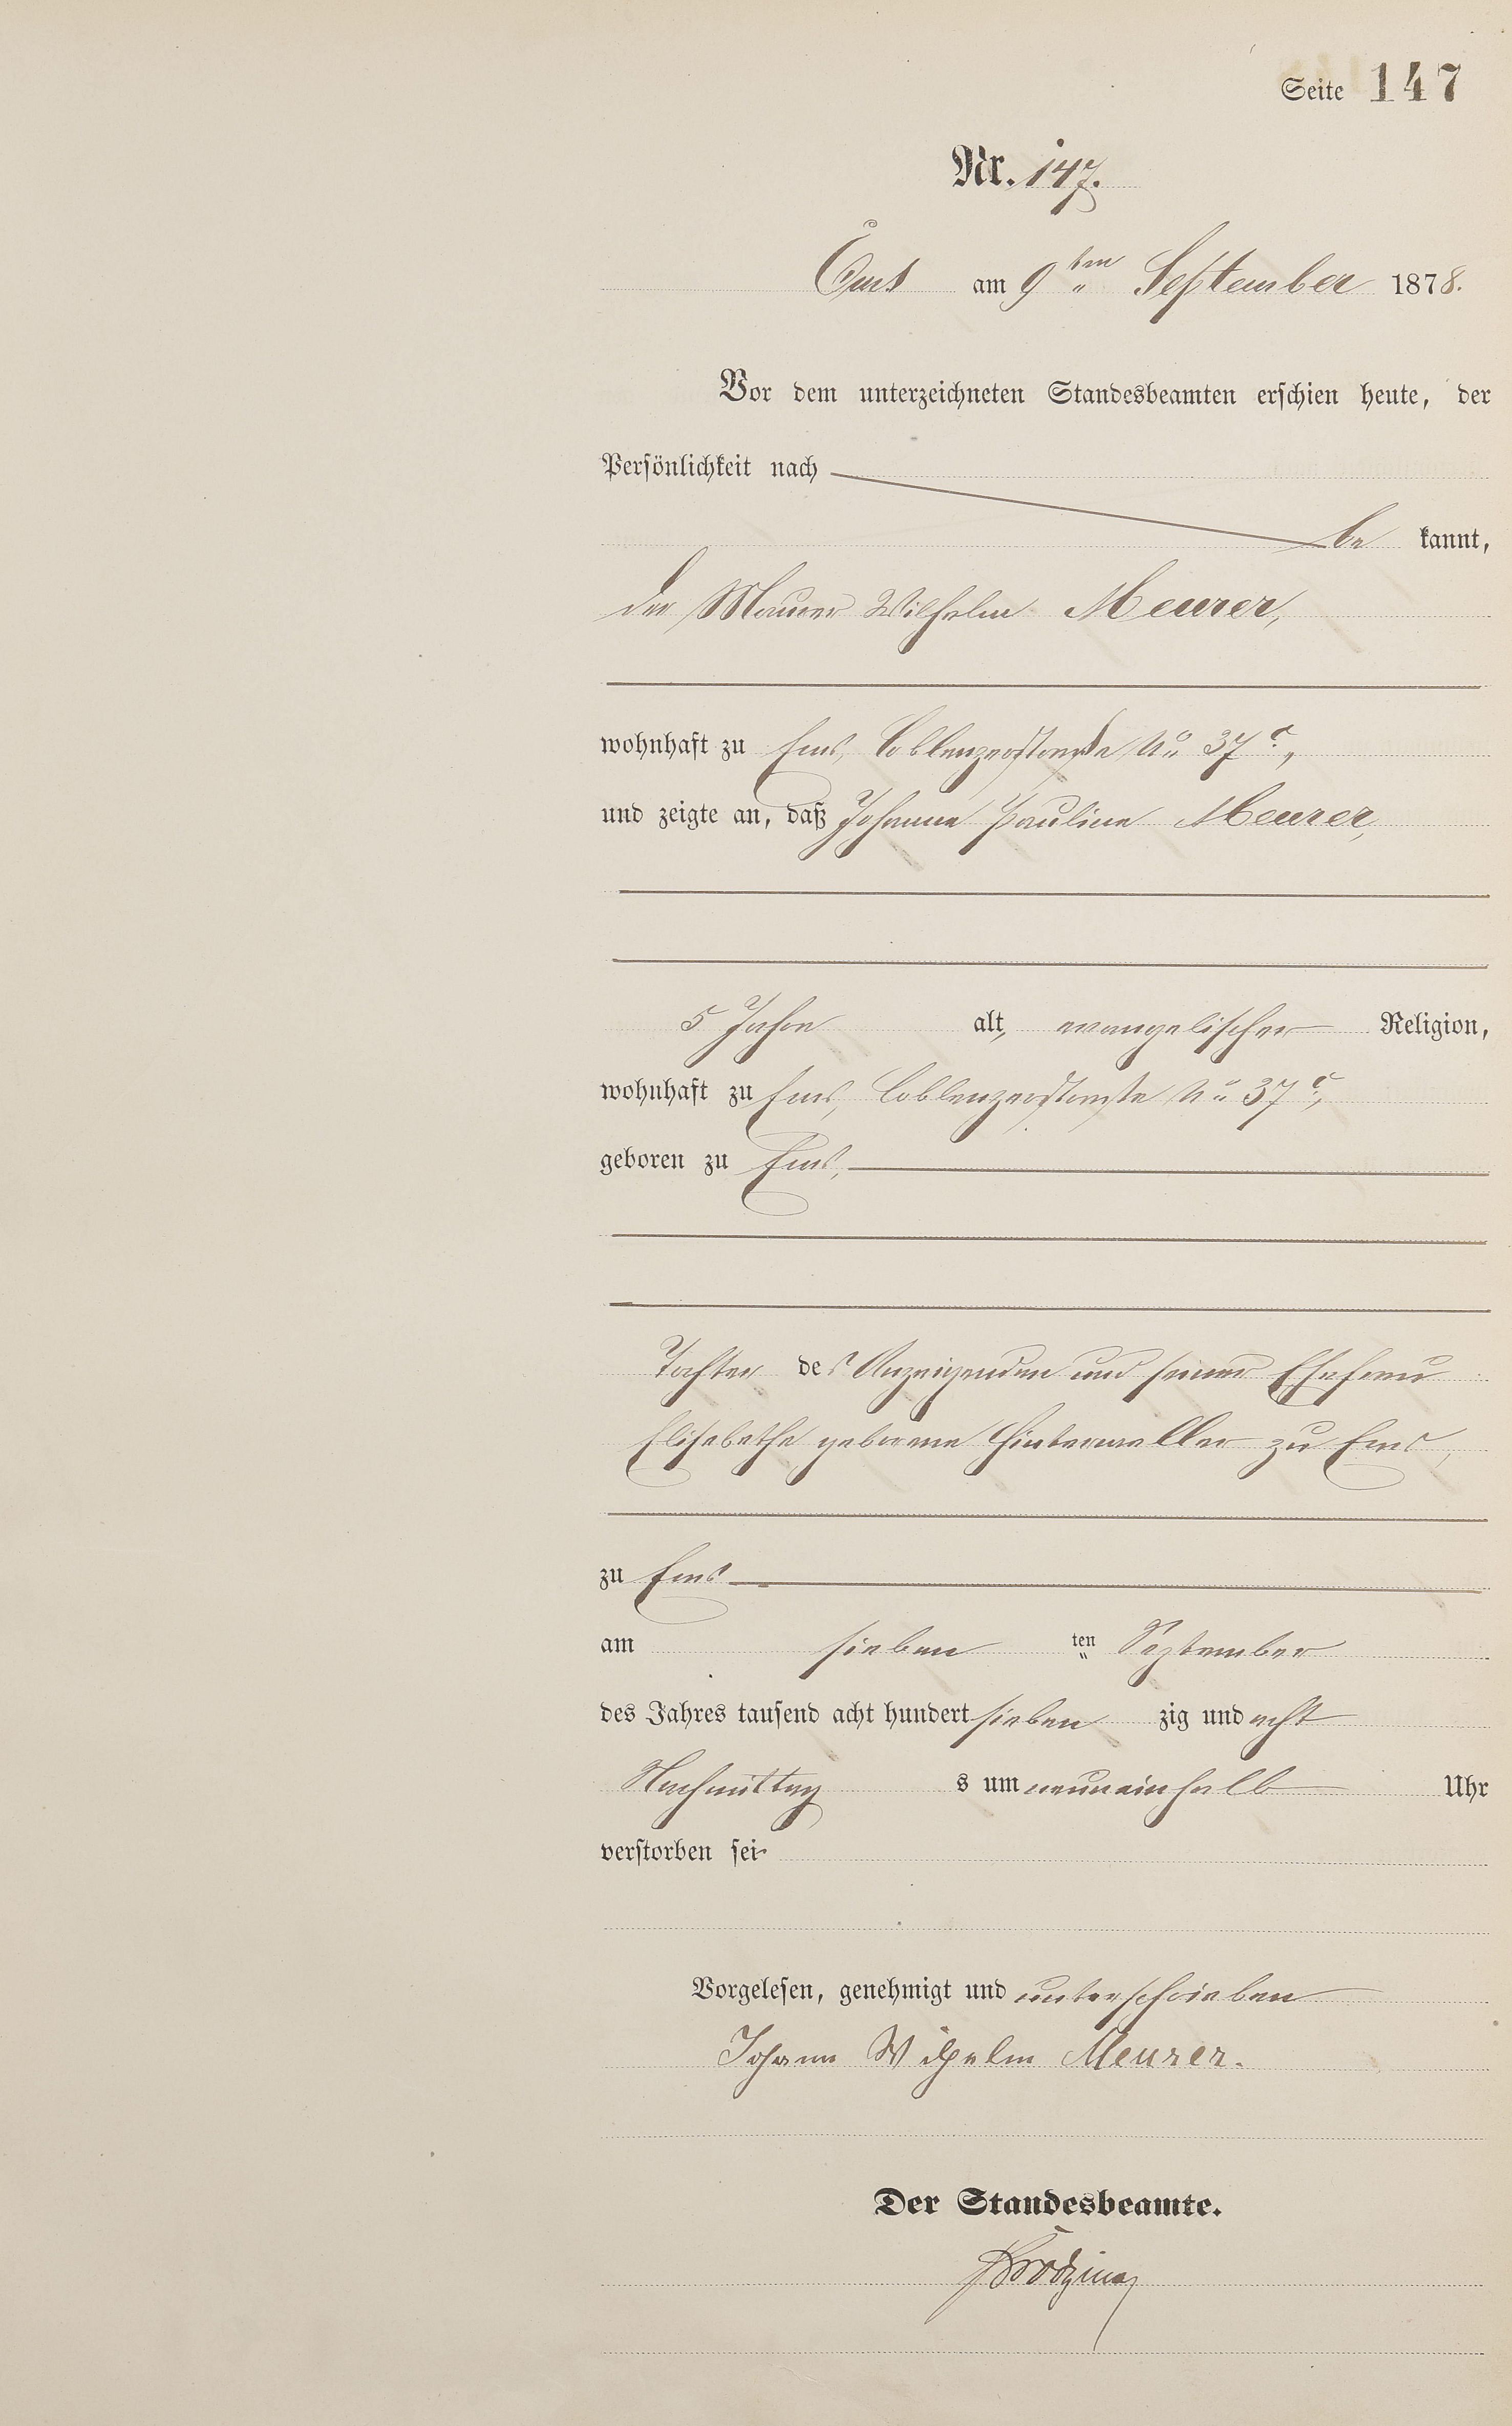 Seite 147
Nr. 147.
Ems am 9ten September 1878.
Vor dem unterzeichneten Standesbeamten erschien heute, der
Persönlichkeit nach
be kannt,
der Maurer Wilhelm Meurer,
wohnhaft zu Ems, Coblenzerstraße No 37c,
und zeigte an, daß Johanne Pauline Meurer,
5 Jahre alt, evangelischer Religion,
wohnhaft zu Ems, Coblenzerstraße No 37c,
geboren zu Ems,
Tochter des Anzeigenden und seiner Ehefrau
Elisabethe geborene zu Ems,
zu Ems
am sieben ten September
des Jahres tausend acht hundert sieben zig und acht
Nachmittag s um neuneinhalb Uhr
verstorben sei
Vorgelesen, genehmigt und unterschrieben
Johann Wilhelm Meurer.
Der Standesbeamte.